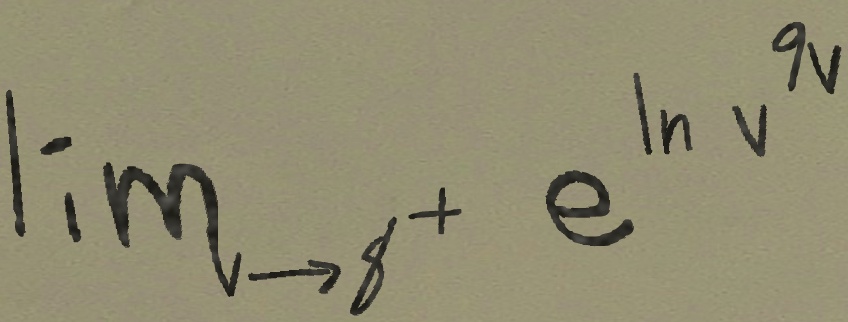 \lim_{v \to 8^+} e^{\ln v^{9v}}